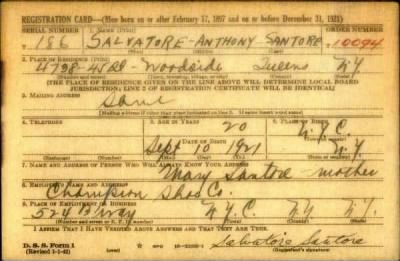 REGISTRATION CARD—(Men born on or after February 17, 1897 and on or before December 31, 1921)
SERIAL NUMBER 1. NAME (Print) ORDER NUMBER
186 SALVATORE-ANTHONY SANTORE 10094
2. PLACE OF RESIDENCE (Print)
4728-48 Woodside Queens N.Y.
(Number and street) (Town, township, village, or city) (County) (State)
[THE PLACE OF RESIDENCE GIVEN ON THE LINE ABOVE WILL DETERMINE LOCAL BOARD
JURISDICTION; LINE 2 OF REGISTRATION CERTIFICATE WILL BE IDENTICAL]
3. MAILING ADDRESS
Same
[Mailing address if other than place indicated on line 2. If same insert word same]
4. TELEPHONE 5. AGE IN YEARS 6. PLACE OF BIRTH
20 N.Y.C.
DATE OF BIRTH
Sept 10 1921 N.Y.
(Exchange) (Number) (Mo.) (Day) (Yr.) (State or country)
7. NAME AND ADDRESS OF PERSON WHO WILL ALWAYS KNOW YOUR ADDRESS
Mary Santore mother
8. EMPLOYER'S NAME AND ADDRESS
Champion Shoe Co.
9. PLACE OF EMPLOYMENT OR BUSINESS
524 B'way N.Y.C. N.Y. N.Y.
(Number and street or R. F. D. number) (Town) (County) (State)
I AFFIRM THAT I HAVE VERIFIED ABOVE ANSWERS AND THAT THEY ARE TRUE.
D. S. S. Form 1
Salvatore Santore
(Registrant's signature)